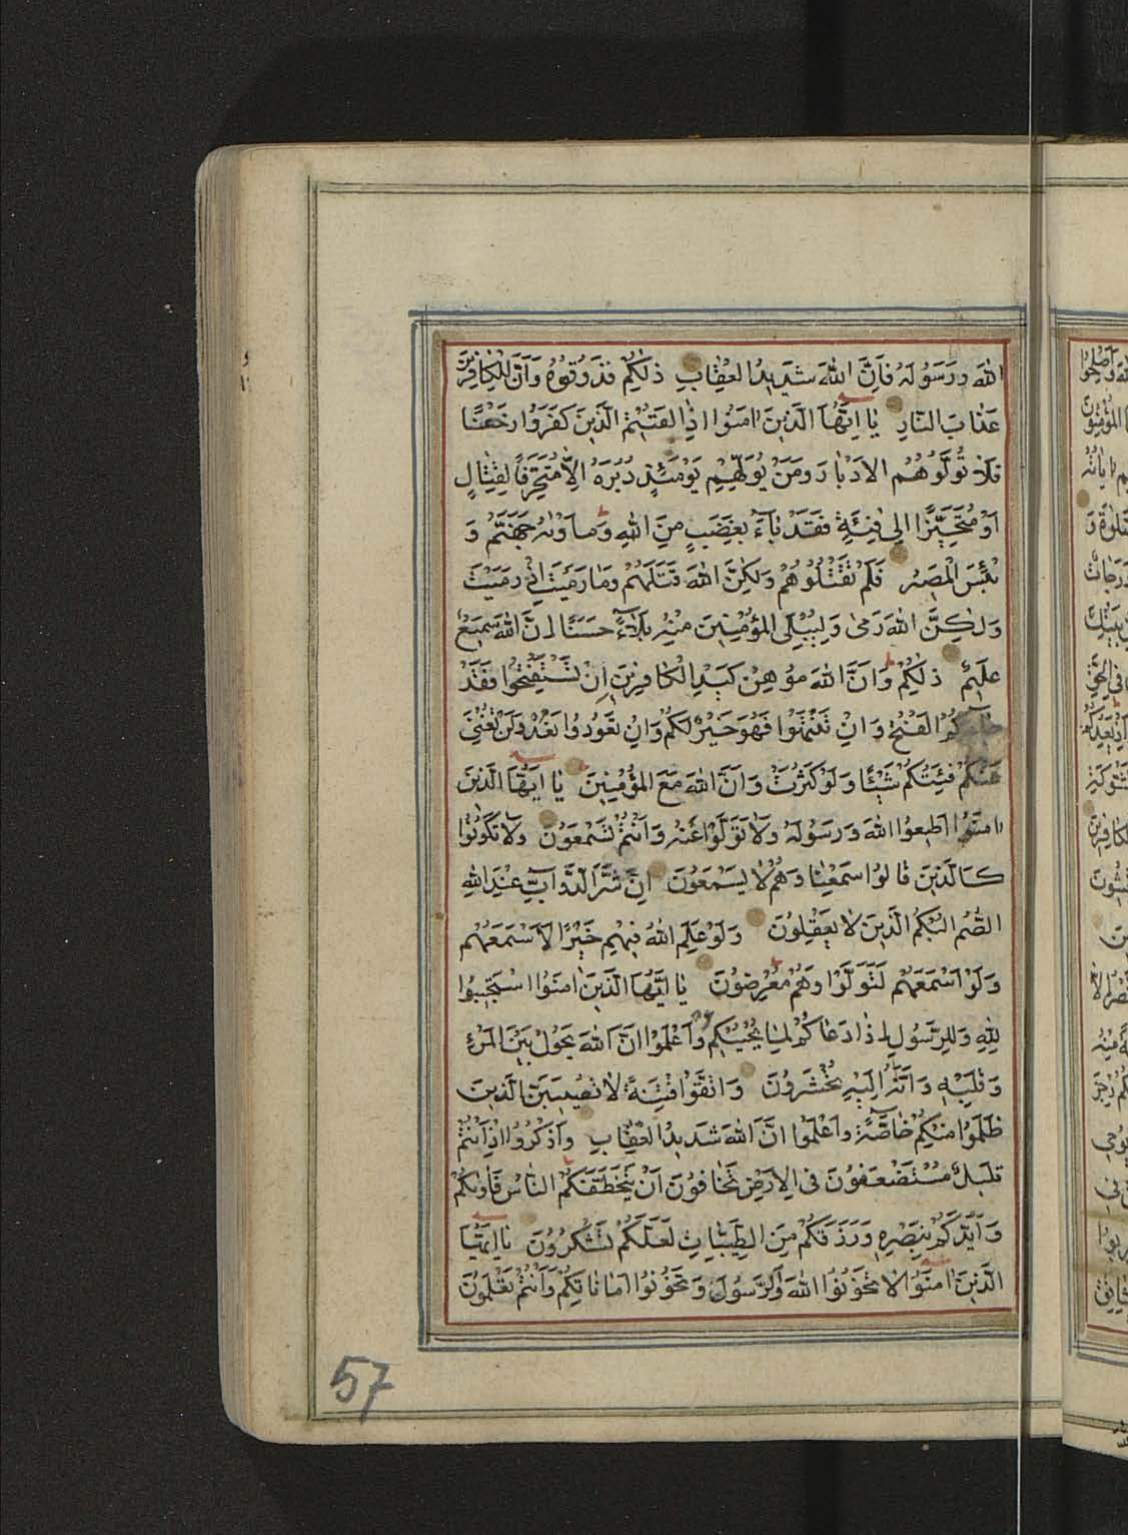 الله وَرَسُولَهُ فَاِنَّ اللهَ شَدِيدُ العِقٰابِ ذٰلِكُمْ فَذُوقُوهُ وَاَنَّ لِلْكٰافِرِينَ
عَذٰابَ النّارِ يٰا اَيُّهَا الَّذِينَ اٰمَنُوا اِذٰا لَقِيتُمُ الَّذِينَ كَفَرُوا زَحْفًا
فَلاٰ تُوَلُّوهُمُ الاَدْبٰارَ وَمَنْ يُوَلِّهِمْ يَوْمَئِذٍ دُبُرَهُ اِلاّٰ مُتَحَرِّفًا لِقِتٰالٍ
اَوْ مُتَحَيِّزًا اِلىٰ فِئَةٍ فَقَدْ بٰآءَ بِغَضَبٍ مِنَ اللهِ وَمَاْوٰيهُ جَهَنَّمُ وَ
بِئْسَ الْمَصِيرُ فَلَمْ تَقْتُلُوهُمْ وَلٰكِنَّ اللهَ قَتَلَهُمْ وَمٰا رَمَيْتَ اِذْ رَمَيْتَ
وَلٰكِنَّ اللهَ رَمىٰ وَلِيُبْلِىَ المُؤْمِنِينَ مِنْهُ بَلاٰءً حَسَنًا اِنَّ اللهَ سَمِيعٌ
عَلِيمٌ ذٰلِكُمْ وَاَنَّ اللهَ مُوهِنُ كَيْدِ الْكٰافِرِينَ اِنْ تَسْتَفْتِحُوا فَقَدْ
جٰاءَكُمُ الْفَتْحُ وَاِنْ تَنْتَهُوا فَهُوَ خَيْرٌ لَكُمْ وَاِنْ تَعُودُوا نَعُدْ وَلَنْ تُغْنِىَ
عَنْكُمْ فِئَتُكُمْ شَيْئًا وَلَوْ كَثُرَتْ وَاَنَّ اللهَ مَعَ المُؤْمِنِينَ يٰا اَيُّهَا الَّذِينَ
اٰمَنُوا اَطِيعُوا اللهَ وَرَسُولَهُ وَلاٰ تَوَلَّوْا عَنْهُ وَاَنْتُمْ تَسْمَعُونَ وَلاٰ تَكُونُوا
كَالَّذِينَ قٰالُوا سَمِعْنٰا وَهُمْ لاٰ يَسْمَعُونَ اِنَّ شَرَّ الدَّوٰآبِّ عِنْدَ اللهِ
الصُّمُّ الْبُكْمُ الَّذِينَ لاٰ يَعْقِلُونَ وَلَوْ عَلِمَ اللهُ فِيهِمْ خَيْرًا لاَسْمَعَهُمْ
وَلَوْ اَسْمَعَهُمْ لَتَوَلَّوْا وَهُمْ مُعْرِضُونَ يٰا اَيُّهَا الَّذِينَ اٰمَنُوا اسْتَجِيبُوا
لِلّهِ وَلِلرَّسُولِ اِذٰا دَعٰاكُمْ لِمٰا يُحْيِيكُمْ وَاعْلَمُوا اَنَّ اللهَ يَحُولُ بَيْنَ المَرْءِ
وَقَلْبِهِ وَاَنَّهُ اِلَيْهِ تُحْشَرُونَ وَاتَّقُوا فِتْنَةً لاٰ تُصِيبَنَّ الَّذِينَ
ظَلَمُوا مِنْكُمْ خٰاصَّةً وَاعْلَمُوا اَنَّ اللهَ شَدِيدُ الْعِقٰابِ وَاذْكُرُوا اِذْ اَنْتُمْ
قَلِيلٌ مُسْتَضْعَفُونَ فِى الاَرْضِ تَخٰافُونَ اَنْ يَتَخَطَّفَكُمُ النّاسُ فَآوٰيكُمْ
وَاَيَّدَكُمْ بِنَصْرِهِ وَرَزَقَكُمْ مِنَ الطَّيِّبٰاتِ لَعَلَّكُمْ تَشْكُرُونَ يٰا اَيُّهَا
الَّذِينَ اٰمَنُوا لاٰ تَخُونُوا اللهَ وَالرَّسُولَ وَتَخُونُوا اَمٰانٰاتِكُمْ وَاَنْتُمْ تَعْلَمُونَ
57